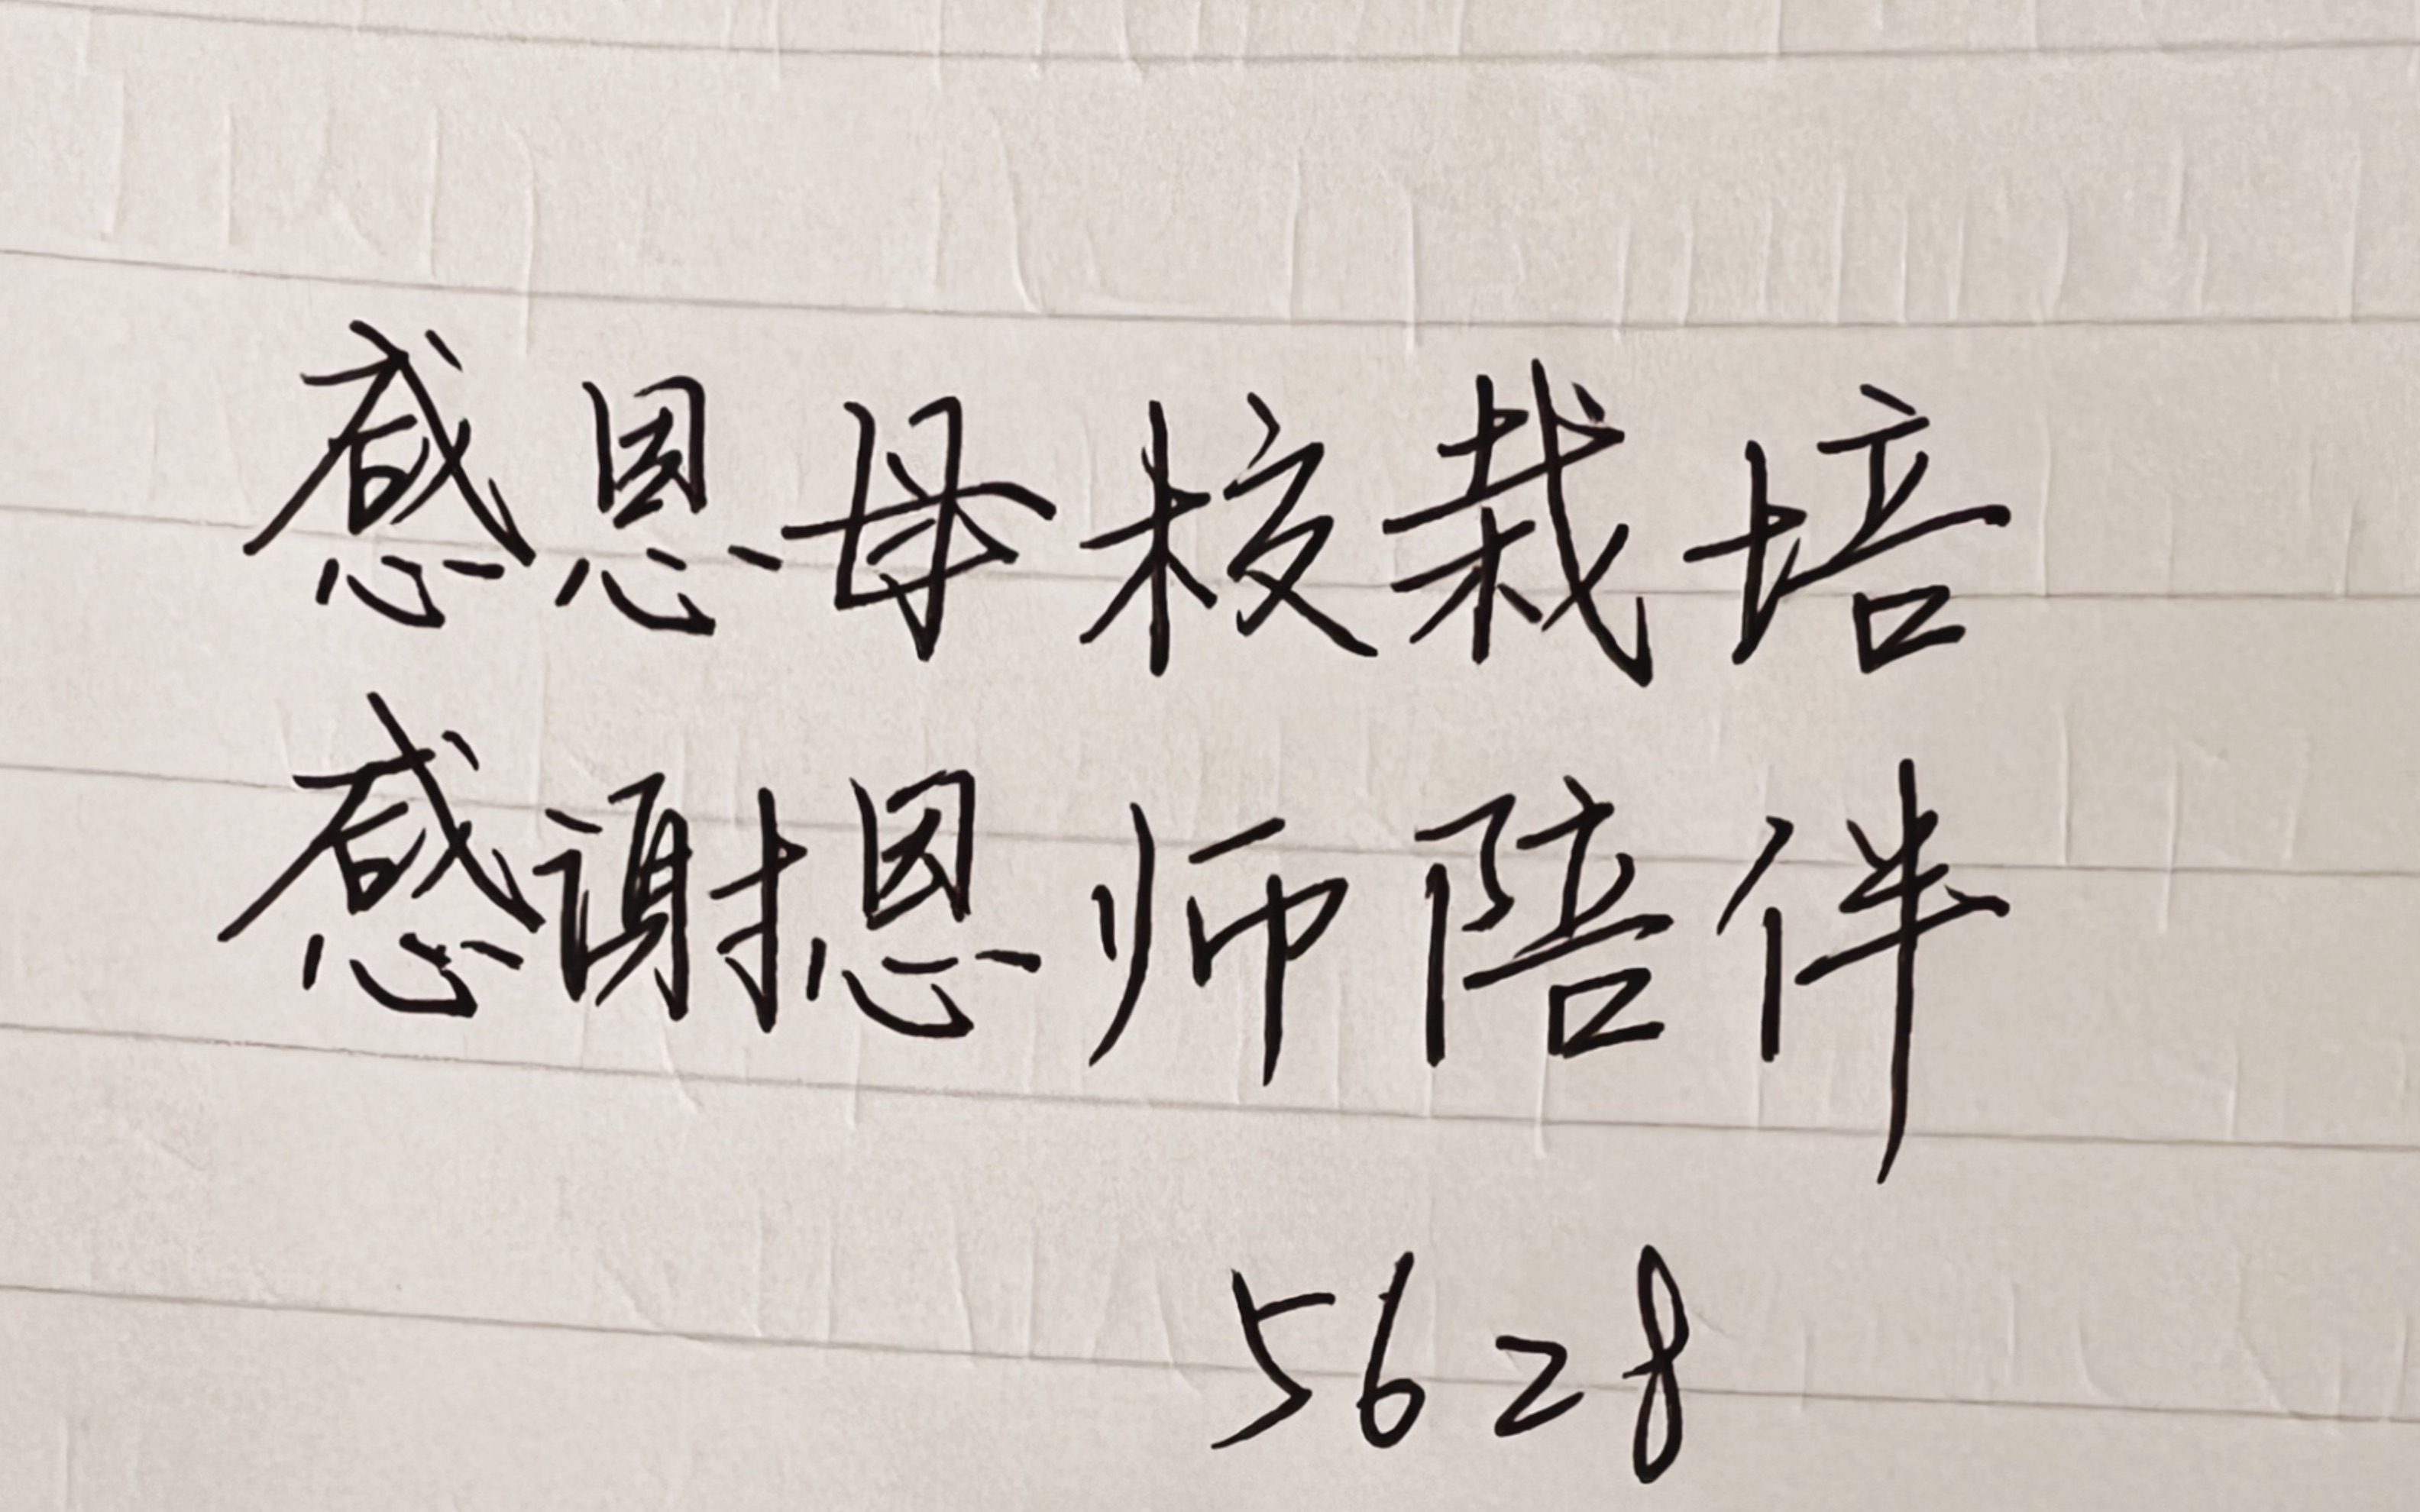 感恩母校栽培
感谢恩师陪伴
5628